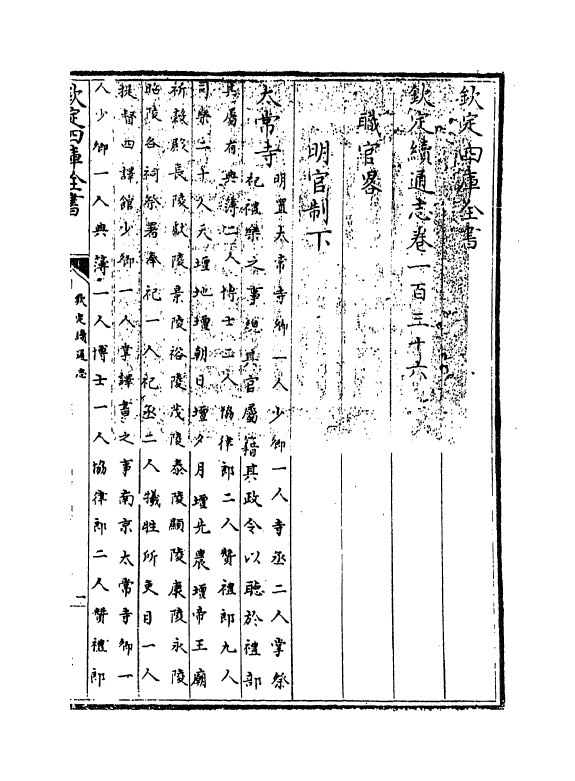 欽定四庫全書
欽定續通志卷一百三十六
職官畧
明官制下
太常寺
明置太常寺卿一人少卿一人寺丞二人掌祭
祀禮樂之事總其官屬籍其政令以聽於禮部
其屬有典簿二人博士二人協律郎二人贊禮郎九人
司樂二十人天壇地壇朝日壇夕月壇先農壇帝王廟
祈穀殿長陵獻陵景陵裕陵茂陵泰陵顯陵康陵永陵
昭陵各祠祭署奉祀一人祀丞二人犧牲所吏目一人
提督四譯館少卿一人掌譯書之事南京太常寺卿一
人少卿一人典簿一人博士一人協律郎二人贊禮郎
欽定四庫全書
欽定續通志